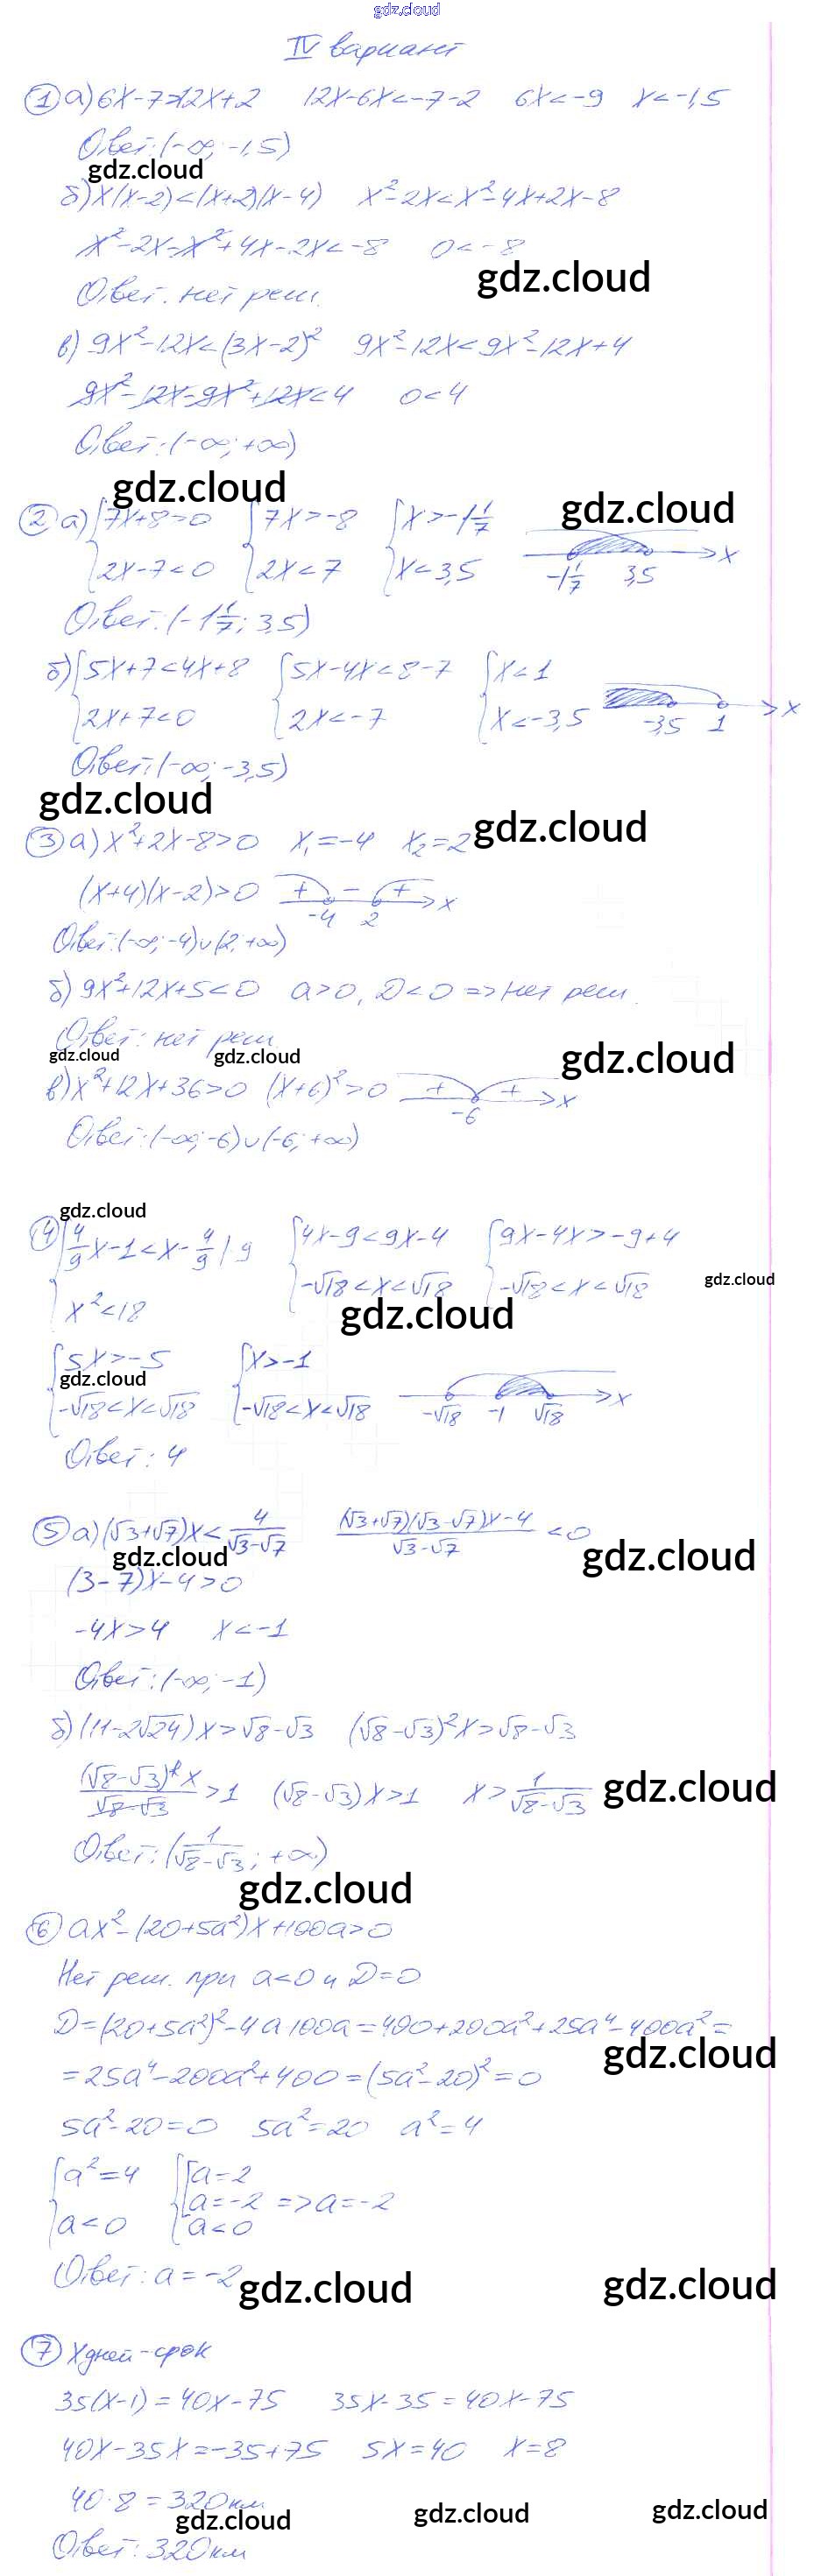 gdz.cloud
IV вариант
① а) 6x-7>12x+2 12x-6x<-7-2 6x<-9 x<-1,5
Ответ: (-∞; -1,5)
gdz.cloud
б) x(x-2)<(x+2)(x-4) x²-2x<x²-4x+2x-8
x²-2x-x²+4x-2x<-8 0<-8
gdz.cloud
Ответ: нет реш.
в) 9x²-12x<(3x-2)² 9x²-12x<9x²-12x+4
9x²-12x-9x²+12x<4 0<4
Ответ: (-∞; +∞)
gdz.cloud gdz.cloud
② а) {7x+8>0 {7x>-8 {x>-1 1/7
{2x-7<0 {2x<7 {x<3,5 -1 1/7 3,5 x
Ответ: (-1 1/7; 3,5)
б) {5x+7<4x+8 {5x-4x<8-7 {x<1
{2x+7<0 {2x<-7 {x<-3,5 -3,5 1 x
Ответ: (-∞; -3,5)
gdz.cloud gdz.cloud
③ а) x²+2x-8>0 x₁=-4 x₂=2
(x+4)(x-2)>0 + - + -4 2 x
Ответ: (-∞; -4)∪(2; +∞)
б) 9x²+12x+5<0 a>0, D<0 => нет реш.
Ответ: нет реш.
gdz.cloud gdz.cloud gdz.cloud
в) x²+12x+36>0 (x+6)²>0 + + -6 x
Ответ: (-∞; -6)∪(-6; +∞)
gdz.cloud
④ {4/9x-1<x-4/9 |9 {4x-9<9x-4 {9x-4x>-9+4
{x²<18 {-√18<x<√18 {-√18<x<√18
gdz.cloud
gdz.cloud
{5x>-5 {x>-1
gdz.cloud
{-√18<x<√18 {-√18<x<√18 -√18 -1 √18 x
Ответ: 4
⑤ а) (√3+√7)x<4/(√3-√7) ((√3+√7)(√3-√7)x-4)/(√3-√7)<0
gdz.cloud gdz.cloud
(3-7)x-4>0
-4x>4 x<-1
Ответ: (-∞; -1)
б) (11-2√24)x>√8-√3 (√8-√3)²x>√8-√3
(√8-√3)²x/(√8-√3)>1 (√8-√3)x>1 x>1/(√8-√3)
gdz.cloud
Ответ: (1/(√8-√3); +∞)
gdz.cloud
⑥ ax²-(20+5a²)x+100a>0
Нет реш. при a<0 и D=0
D=(20+5a²)²-4a100a=400+200a²+25a⁴-400a²=
gdz.cloud
=25a⁴-200a²+400=(5a²-20)²=0
5a²-20=0 5a²=20 a²=4
{a²=4 {[a=2
[a=-2 => a=-2
{a<0 {a<0
Ответ: a=-2
gdz.cloud gdz.cloud
⑦ x дней - срок
35(x-1)=40x-75 35x-35=40x-75
40x-35x=-35+75 5x=40 x=8
40·8=320км
gdz.cloud gdz.cloud gdz.cloud
Ответ: 320км